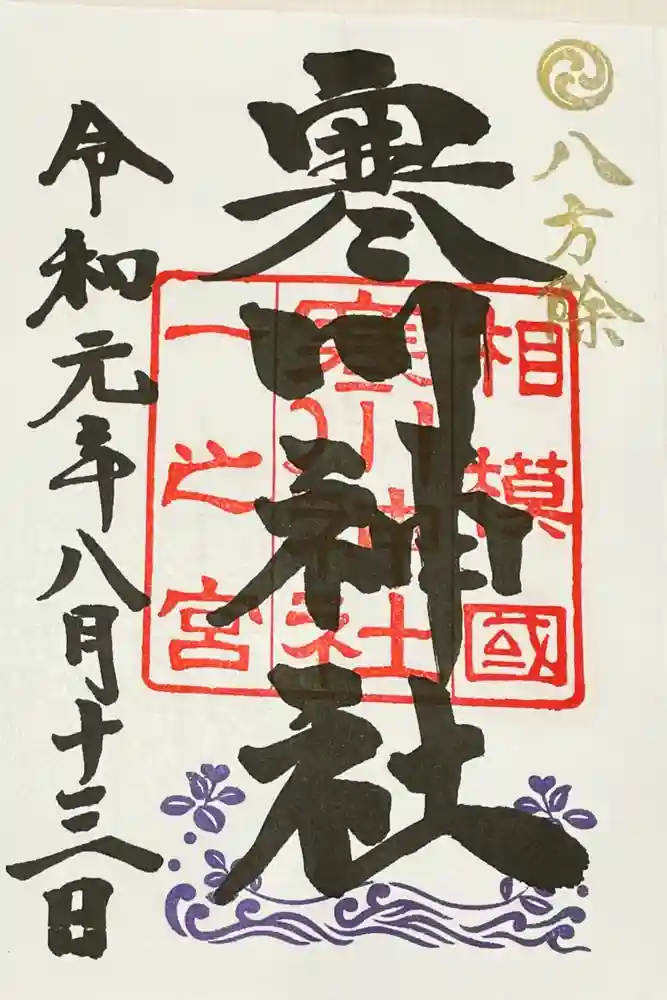 八方除
寒川神社
相模國
寒川神社
一之宮
令和元年八月十三日